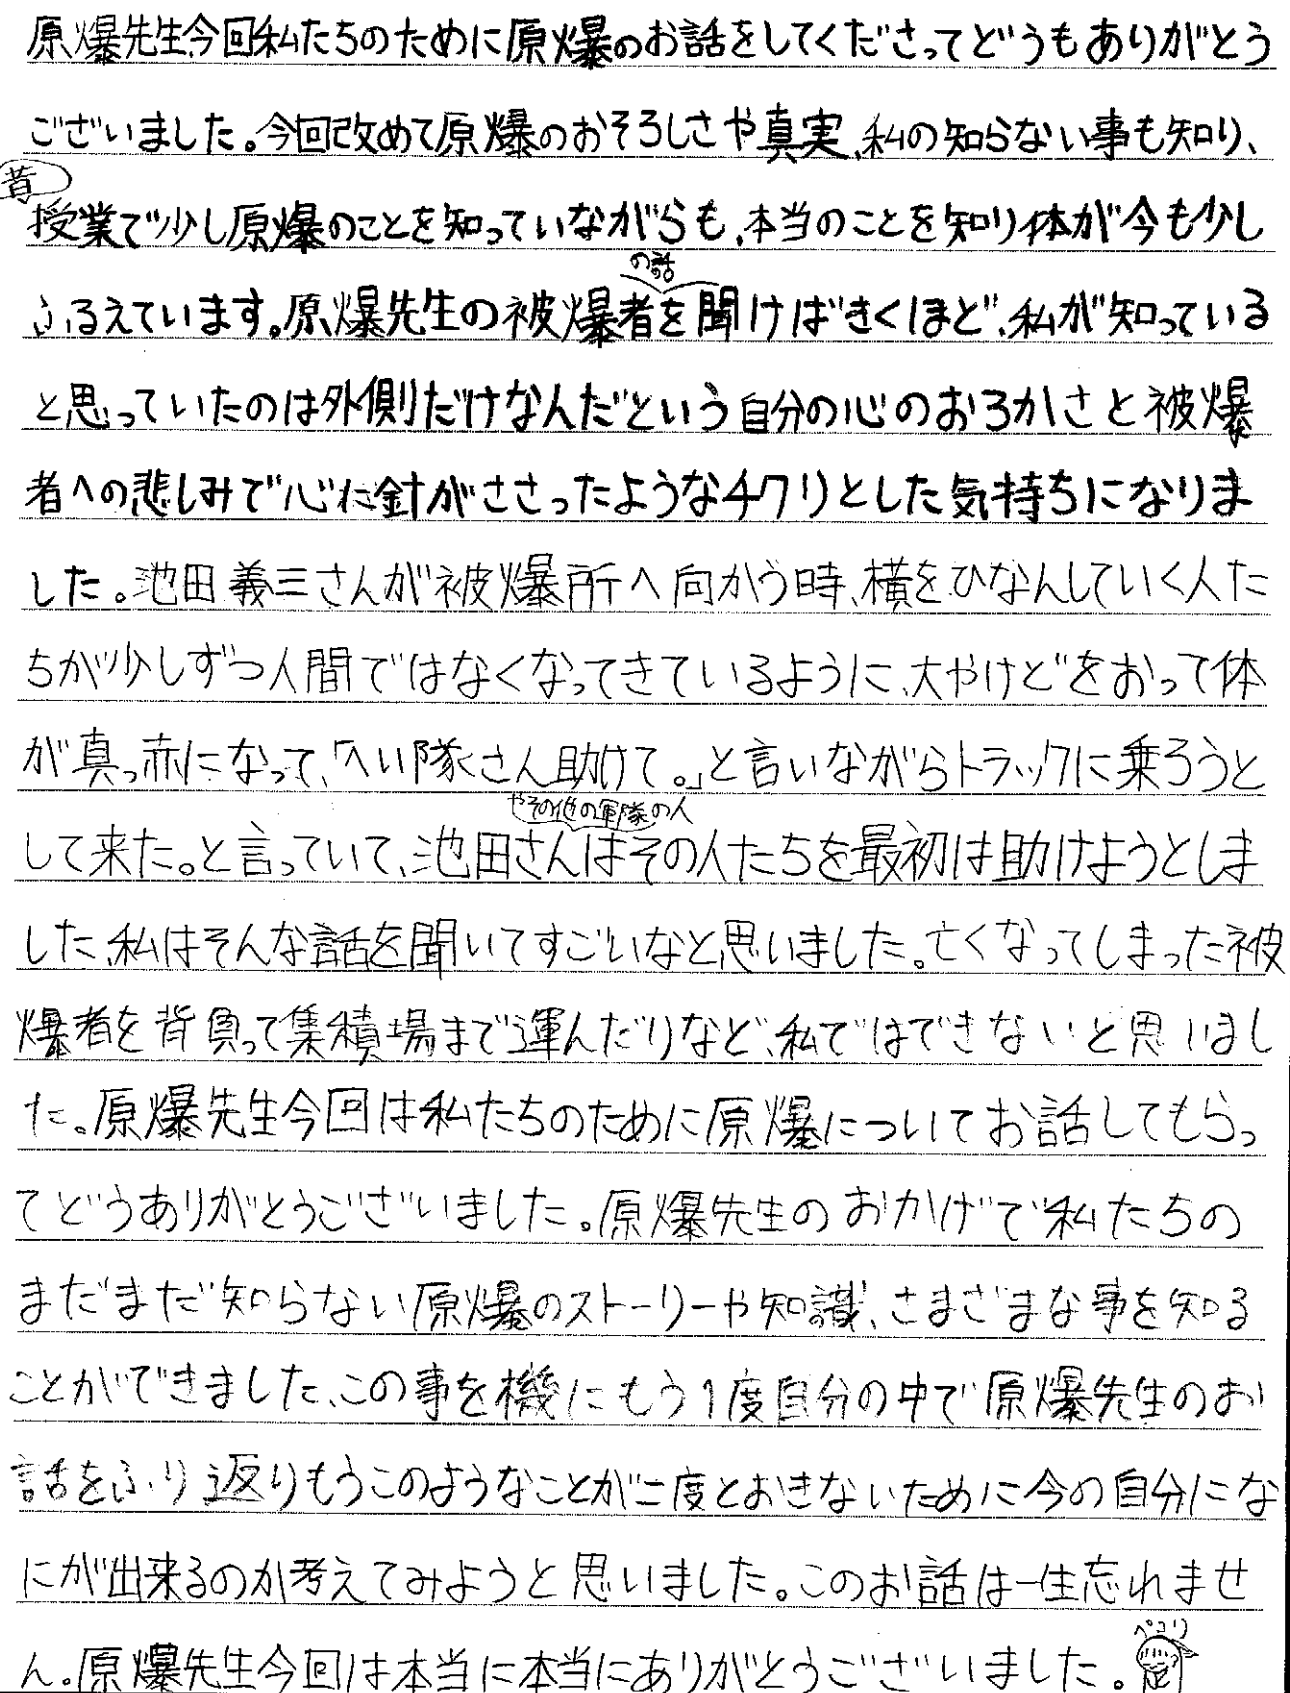 原爆先生今回私たちのために原爆のお話をしてくださってどうもありがとう
ございました。今回改めて原爆のおそろしさや真実、私の知らない事も知り、
昔
授業で少し原爆のことを知っていながらも、本当のことを知り体が今も少し
の話
ふるえています。原爆先生の被爆者を聞けばきくほど、私が知っている
と思っていたのは外側だけなんだという自分の心のおろかさと被爆
者への悲しみで心に針がささったようなチクリとした気持ちになりま
した。池田義三さんが被爆所へ向かう時、横をひなんしていく人た
ちが少しずつ人間ではなくなってきているように、大やけどをおって体
が真っ赤になって、「へい隊さん助けて。」と言いながらトラックに乗ろうと
やその他の軍隊の人
して来た。と言っていて、池田さんはその人たちを最初は助けようとしま
した、私はそんな話を聞いてすごいなと思いました。亡くなってしまった被
爆者を背負って集積場まで運んだりなど、私ではできないと思いまし
た。原爆先生今回は私たちのために原爆についてお話してもらっ
てどうありがとうございました。原爆先生のおかげで私たちの
まだまだ知らない原爆のストーリーや知識、さまざまな事を知る
ことができました、この事を機にもう1度自分の中で原爆先生のお
話をふり返りもうこのようなことが二度とおきないために今の自分にな
にが出来るのか考えてみようと思いました。このお話は一生忘れませ
ペコリ
ん。原爆先生今回は本当に本当にありがとうございました。